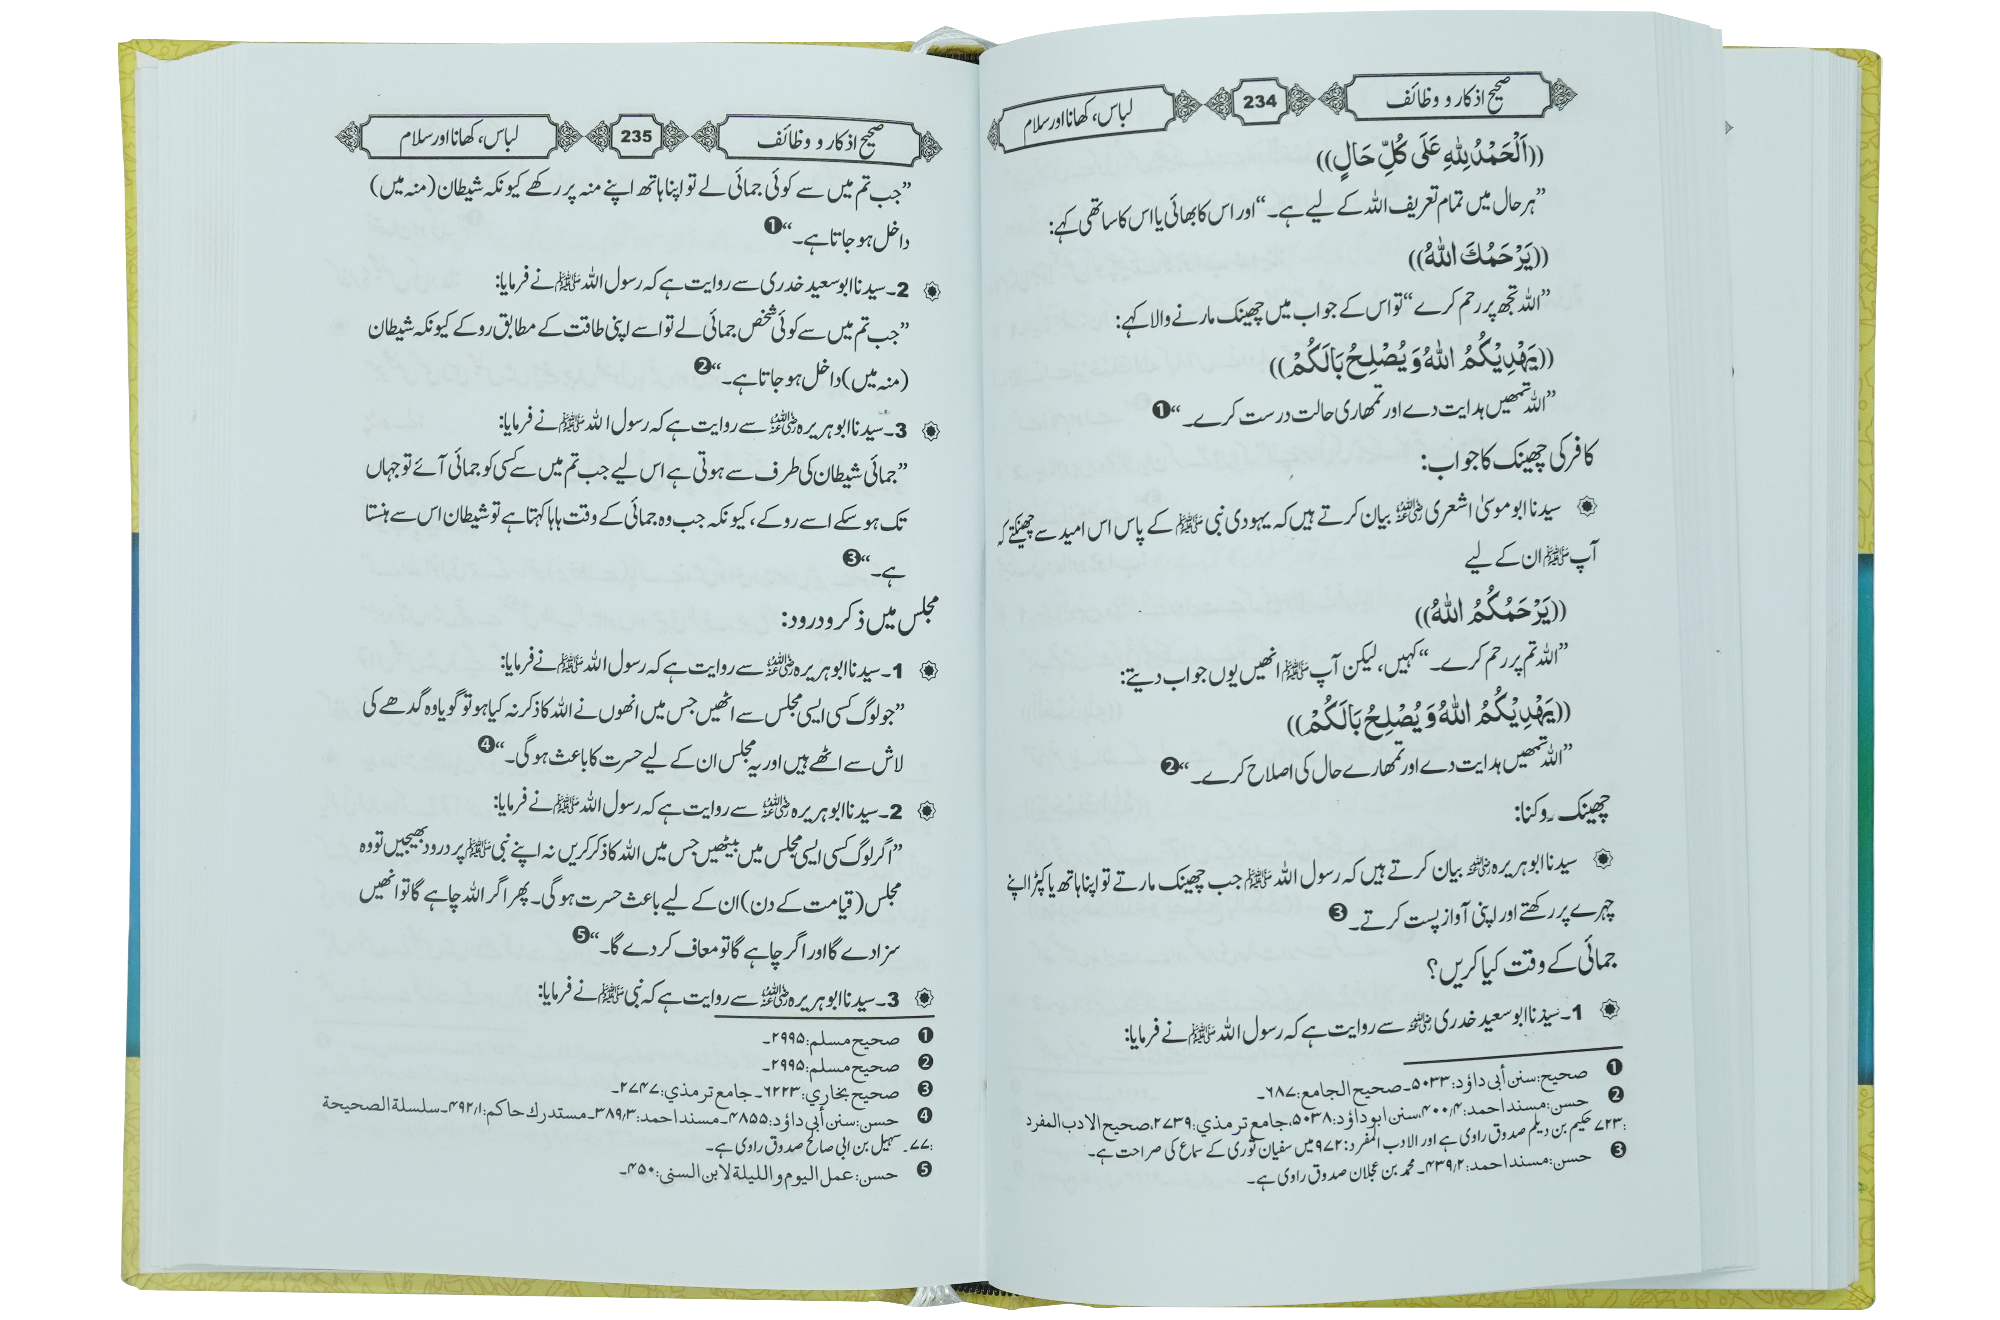 صحیح اذکار و وظائف 234 لباس، کھانا اور سلام
((اَلْحَمْدُ لِلّٰهِ عَلَى كُلِّ حَالٍ))
”ہر حال میں تمام تعریف اللہ کے لیے ہے۔“ اور اس کا بھائی یا اس کا ساتھی کہے:
((يَرْحَمُكَ اللّٰهُ))
”اللہ تجھ پر رحم کرے“ تو اس کے جواب میں چھینک مارنے والا کہے:
((يَهْدِيْكُمُ اللّٰهُ وَ يُصْلِحُ بَالَكُمْ))
”اللہ تمھیں ہدایت دے اور تمھاری حالت درست کرے۔“ ❶
کافر کی چھینک کا جواب:
سیدنا ابو موسیٰ اشعری رضی اللہ عنہ بیان کرتے ہیں کہ یہودی نبی ﷺ کے پاس اس امید سے چھینکتے کہ
آپ ﷺ ان کے لیے
((يَرْحَمُكُمُ اللّٰهُ))
”اللہ تم پر رحم کرے۔“ کہیں، لیکن آپ ﷺ انھیں یوں جواب دیتے:
((يَهْدِيْكُمُ اللّٰهُ وَ يُصْلِحُ بَالَكُمْ))
”اللہ تمھیں ہدایت دے اور تمھارے حال کی اصلاح کرے۔“ ❷
چھینک روکنا:
سیدنا ابو ہریرہ رضی اللہ عنہ بیان کرتے ہیں کہ رسول اللہ ﷺ جب چھینک مارتے تو اپنا ہاتھ یا کپڑا اپنے
چہرے پر رکھتے اور اپنی آواز پست کرتے۔ ❸
جمائی کے وقت کیا کریں؟
1۔ سیدنا ابو سعید خدری رضی اللہ عنہ سے روایت ہے کہ رسول اللہ ﷺ نے فرمایا:
❶ صحیح: سنن أبی داؤد: ۵۰۳۳۔ صحیح الجامع: ۶۸۷۔
❷ حسن: مسند احمد: ۴۰۰/۴، سنن ابو داؤد: ۵۰۳۸، جامع ترمذي: ۲۷۳۹، صحیح الادب المفرد
:۷۲۳ حکیم بن دیلم صدوق راوی ہے اور الادب المفرد: ۹۷۲ میں سفیان ثوری کے سماع کی صراحت ہے۔
❸ حسن: مسند احمد: ۴۳۹/۲۔ محمد بن عجلان صدوق راوی ہے۔
صحیح اذکار و وظائف 235 لباس، کھانا اور سلام
”جب تم میں سے کوئی جمائی لے تو اپنا ہاتھ اپنے منہ پر رکھے کیونکہ شیطان (منہ میں)
داخل ہو جاتا ہے۔“ ❶
2۔ سیدنا ابو سعید خدری سے روایت ہے کہ رسول اللہ ﷺ نے فرمایا:
”جب تم میں سے کوئی شخص جمائی لے تو اسے اپنی طاقت کے مطابق روکے کیونکہ شیطان
(منہ میں) داخل ہو جاتا ہے۔“ ❷
3۔ سیدنا ابو ہریرہ رضی اللہ عنہ سے روایت ہے کہ رسول اللہ ﷺ نے فرمایا:
”جمائی شیطان کی طرف سے ہوتی ہے اس لیے جب تم میں سے کسی کو جمائی آئے تو جہاں
تک ہو سکے اسے روکے، کیونکہ جب وہ جمائی کے وقت ہاہا کہتا ہے تو شیطان اس سے ہنستا
ہے۔“ ❸
مجلس میں ذکر و درود:
1۔ سیدنا ابو ہریرہ رضی اللہ عنہ سے روایت ہے کہ رسول اللہ ﷺ نے فرمایا:
”جو لوگ کسی ایسی مجلس سے اٹھیں جس میں انھوں نے اللہ کا ذکر نہ کیا ہو تو گویا وہ گدھے کی
لاش سے اٹھے ہیں اور یہ مجلس ان کے لیے حسرت کا باعث ہوگی۔“ ❹
2۔ سیدنا ابو ہریرہ رضی اللہ عنہ سے روایت ہے کہ رسول اللہ ﷺ نے فرمایا:
”اگر لوگ کسی ایسی مجلس میں بیٹھیں جس میں اللہ کا ذکر کریں نہ اپنے نبی ﷺ پر درود بھیجیں تو وہ
مجلس (قیامت کے دن) ان کے لیے باعث حسرت ہوگی۔ پھر اگر اللہ چاہے گا تو انھیں
سزا دے گا اور اگر چاہے گا تو معاف کر دے گا۔“ ❺
3۔ سیدنا ابو ہریرہ رضی اللہ عنہ سے روایت ہے کہ نبی ﷺ نے فرمایا:
❶ صحیح مسلم: ۲۹۹۵۔
❷ صحیح مسلم: ۲۹۹۵۔
❸ صحیح بخاري: ۶۲۲۳۔ جامع ترمذي: ۲۷۴۷۔
❹ حسن: سنن أبی داؤد: ۴۸۵۵۔ مسند احمد: ۳۸۹/۳۔ مستدرك حاکم: ۴۹۲/۱۔ سلسلة الصحیحة
:۷۷۔ سہیل بن ابی صالح صدوق راوی ہے۔
❺ حسن: عمل الیوم و اللیلة لابن السنی: ۴۵۰۔